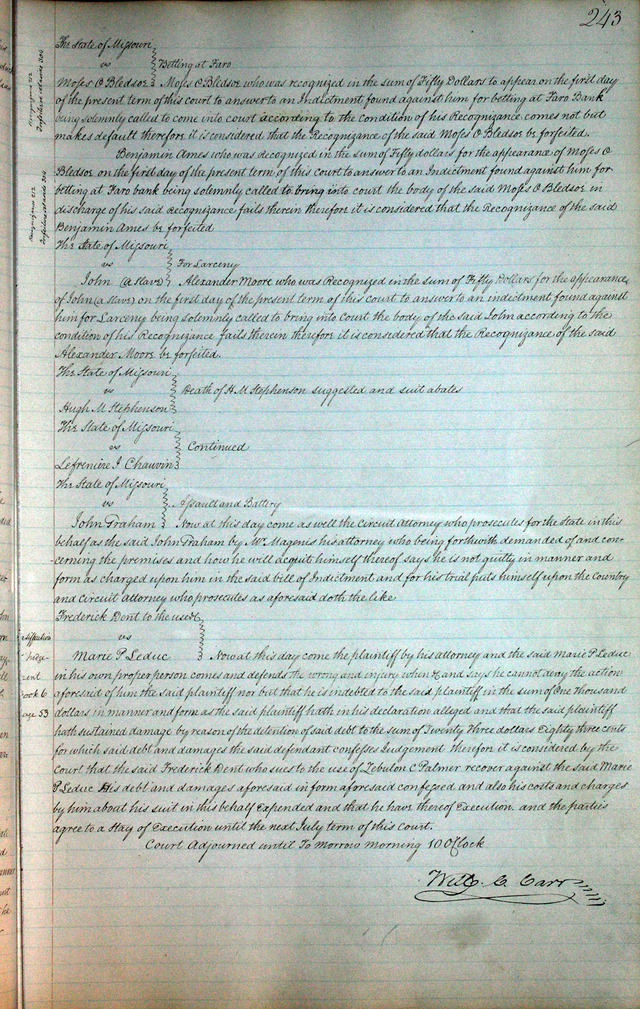 243
The State of Missouri
vs
Betting at Faro
Moses O Bledsoe Moses O Bledsoe who was recognized in the sum of Fifty Dollars to appear on the first day
of the present term of this court to answer to an Indictment found against him for betting at Faro Bank
being solemnly called to come into court according to the condition of his Recognizance comes not but
makes default therefore it is considered that the Recognizance of the said Moses O Bledsoe be forfeited.
Benjamin Ames who was recognized in the sum of Fifty dollars for the appearance of Moses O
Bledsoe on the first day of the present term of this court to answer to an Indictment found against him for
betting at Faro bank being solemnly called to bring into court the body of the said Moses O Bledsoe in
discharge of his said Recognizance fails therein therefore it is considered that the Recognizance of the said
Benjamin Ames be forfeited
The State of Missouri
vs For Larceny
John (a slave) Alexander Moore who was Recognized in the sum of Fifty Dollars for the appearance
of John (a slave) on the first day of the present term of this Court to answer to an indictment found against
him for Larceny being solemnly called to bring into Court the body of the said John according to the
condition of his Recognizance fails therein therefore it is considered that the Recognizance of the said
Alexander Moore be forfeited.
The State of Missouri
vs Death of H M Stephenson suggested and suit abates
Hugh M Stephenson
The State of Missouri
vs Continued
Lefreniere J Chauvin
The State of Missouri
vs Assault and Battery
John Graham Now at this day come as well the Circuit Attorney who prosecutes for the State in this
behalf as the said John Graham by Mr Magenis his attorney who being forthwith demanded of and con-
cerning the premises and how he will acquit himself thereof says he is not guilty in manner and
form as charged upon him in the said bill of Indictment and for his trial puts himself upon the Country
and Circuit attorney who prosecutes as aforesaid doth the like
Frederick Dent to the use &c
vs
Marie P Leduc Now at this day come the plaintiff by his attorney and the said Marie P Leduc
in his own proper person comes and defends the wrong and injury when &c and says he cannot deny the action
aforesaid of him the said plaintiff nor but that he is indebted to the said plaintiff in the sum of One thousand
dollars in manner and form as the said plaintiff hath in his declaration alleged and that the said plaintiff
hath sustained damage by reason of the detention of said debt to the sum of Twenty Three dollars Eighty three cents
for which said debt and damages the said defendant confesses Judgement therefore it is considered by the
Court that the said Frederick Dent who sues to the use of Zebulon C Palmer recover against the said Marie
P Leduc His debt and damages aforesaid in form aforesaid confessed and also his costs and charges
by him about his suit in this behalf Expended and that he have thereof Execution. and the parties
agree to a Stay of Execution until the next July term of this Court.
Court Adjourned until To Morrow Morning 10 OClock
Will. C. Carr